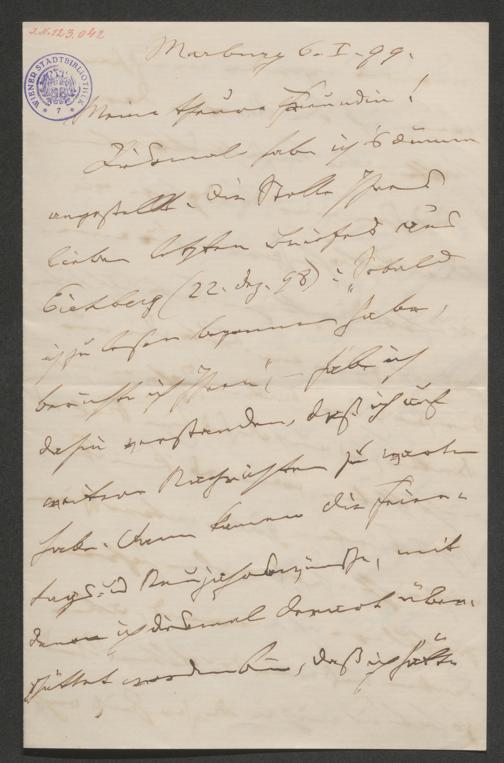 I.N. 123.042
WIENER STADTBIBLIOTHEK
* 7 *
Marburg 6. I. 99.
Meine theure Freundin!
Diesmal habe ich's dumm
angestellt. Die Stelle Ihres
lieben letzten Briefes aus
Eichberg (22. Dez. 98): "Sobald
ich zu lesen begonnen habe,
berichte ich Ihnen", – habe ich
dahin verstanden, daß ich auf
weitere Nachrichten zu warten
habe. Dann kamen die Feier-
tags- u Neujahrswünsche, mit
denen ich diesmal derart über-
schüttet worden bin, daß ich hätte